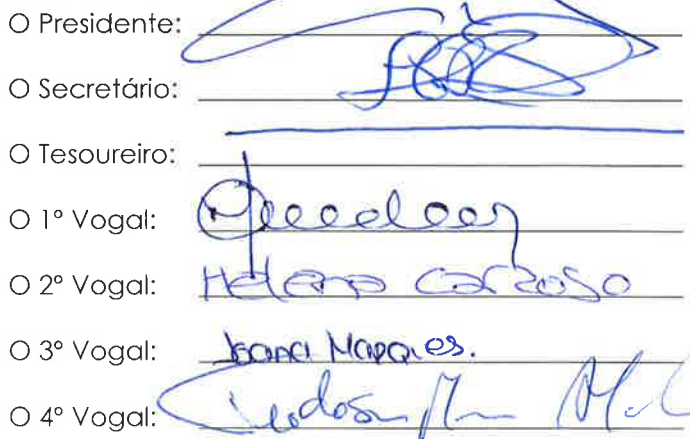 O Presidente:
O Secretário:
O Tesoureiro:
O 1º Vogal:
O 2º Vogal: Helena Cardoso
O 3º Vogal: Joana Marques.
O 4º Vogal: